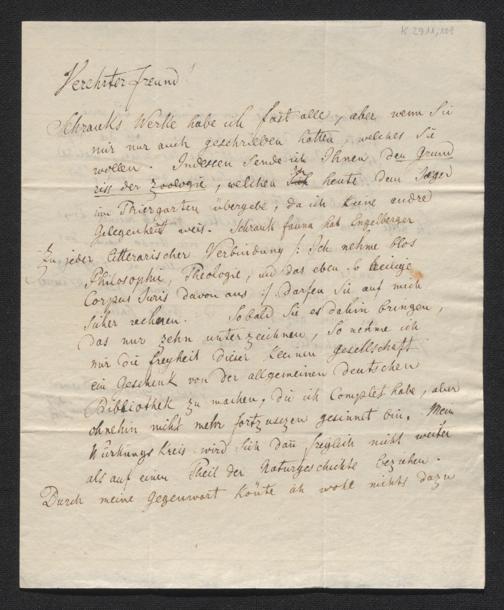 K 2911,109
Verehrter Freund!
Schranks Werke habe ich fast alle, aber wenn Sie
mir nur auch geschrieben hätten, welches Sie
wollen. Indessen sende ich Ihnen den Grund
riss der Zoologie, welchen ich heute dem Jäger
im Thiergarten übergebe, da ich keine andre
Gelegenheit weis. Schrank fauna hat Engelberger
Zu jeder litterarischer Verbindung /: Ich nehme blos
Philosophie, Theologie, und das eben so heilige
Corpus Juris davon aus :/ darfen Sie auf mich
sicher rechnen. Sobald Sie es dahin bringen,
das nur zehn unterzeichnen, so nehme ich
mir die Freyheit dieser kleinen Gesellschaft
ein Geschenk von der allgemeinen deutschen
Bibliothek zu machen, die ich Complet habe, aber
ohnehin nicht mehr fortzusezen gesinnet bin. Mein
Würkungs Kreis wird sich dan freylich nicht weiter
als auf einen Theil der Naturgeschichte beziehen.
Durch meine Gegenwart könte ich wohl nichts dazu